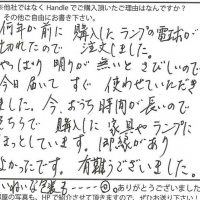 ※他社ではなく Handle でご購入頂いたご理由はなんですか？
その他ご自由にお書き下さい。
何年か前に購入したランプの電球が
切れたので注文しました。
やっぱり明りが無いとさびしいので
今日届いてすぐ使わせていただき
ました。今、おうち時間が長いので
そちらで購入した家具やランプに
ほっとしています。御縁があり
よかったです。有難うございました。
ありがとうございました
HPで紹介させて頂きますので、ぜひお送り下さい